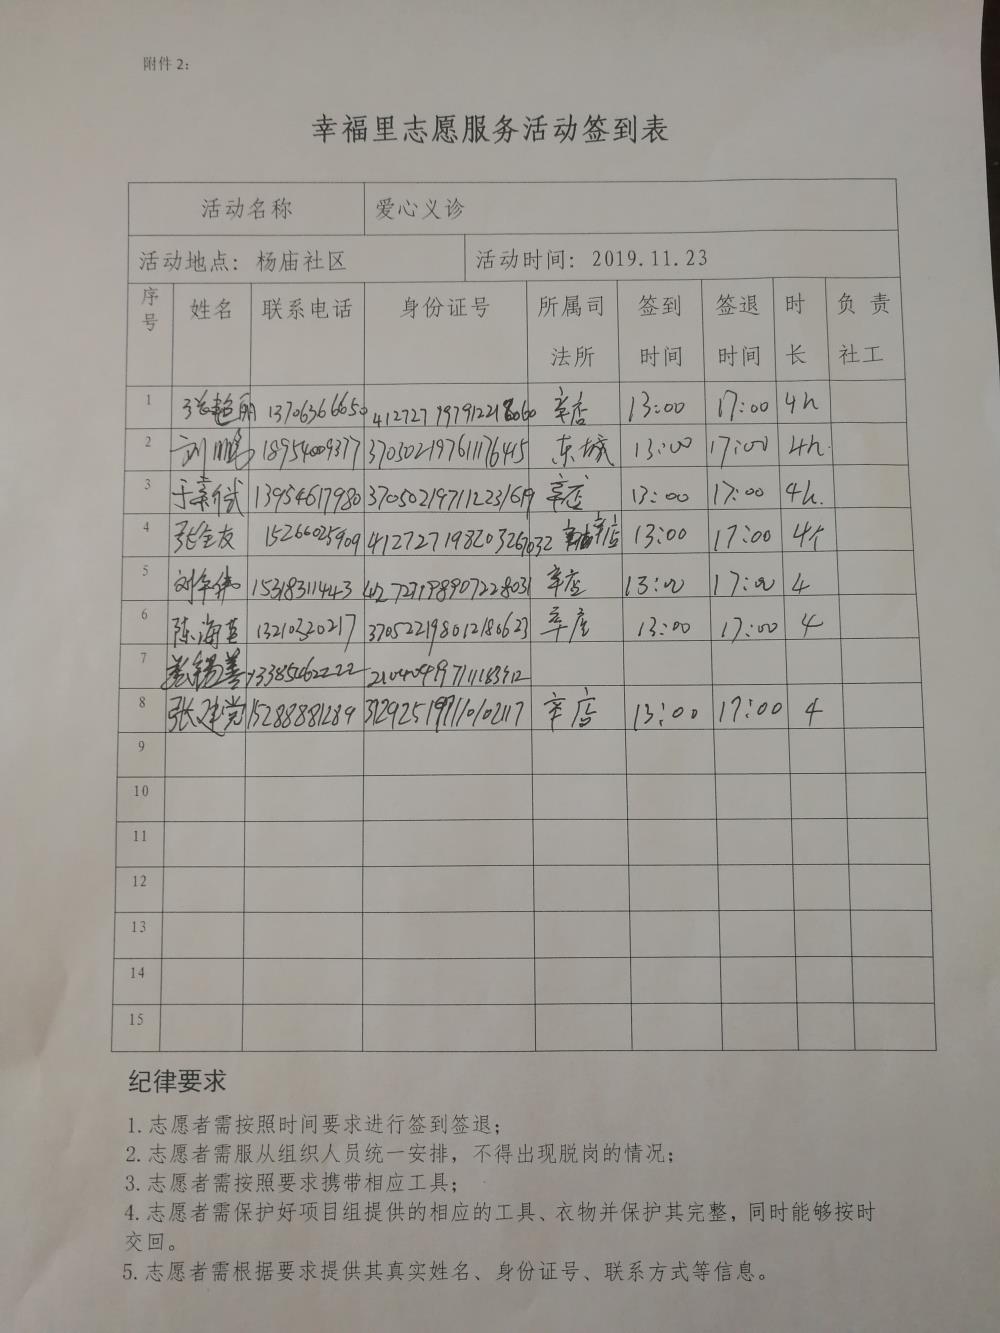 附件2:
幸福里志愿服务活动签到表
活动名称 爱心义诊
活动地点: 杨庙社区 活动时间: 2019.11.23
序号 姓名 联系电话 身份证号 所属司法所 签到时间 签退时间 时长 负责社工
1 张艳丽 13706366650 辛店 13:00 17:00 4h
2 刘鹏 18954009377 370502197611176415 东城 13:00 17:00 4h.
3 13954617980 370502197112231619 辛店 13:00 17:00 4h.
4 张全友 15266025909 412727198203267032 辛店 13:00 17:00 4个
5 15318311443 412727198907228031 辛店 13:00 17:00 4
6 陈海英 13210320217 370522198012180623 辛店 13:00 17:00 4
7 13385462222
8 张建党 15288881289 辛店 13:00 17:00 4
9
10
11
12
13
14
15
纪律要求
1.志愿者需按照时间要求进行签到签退;
2.志愿者需服从组织人员统一安排，不得出现脱岗的情况;
3.志愿者需按照要求携带相应工具;
4.志愿者需保护好项目组提供的相应的工具、衣物并保护其完整，同时能够按时
交回。
5.志愿者需根据要求提供其真实姓名、身份证号、联系方式等信息。